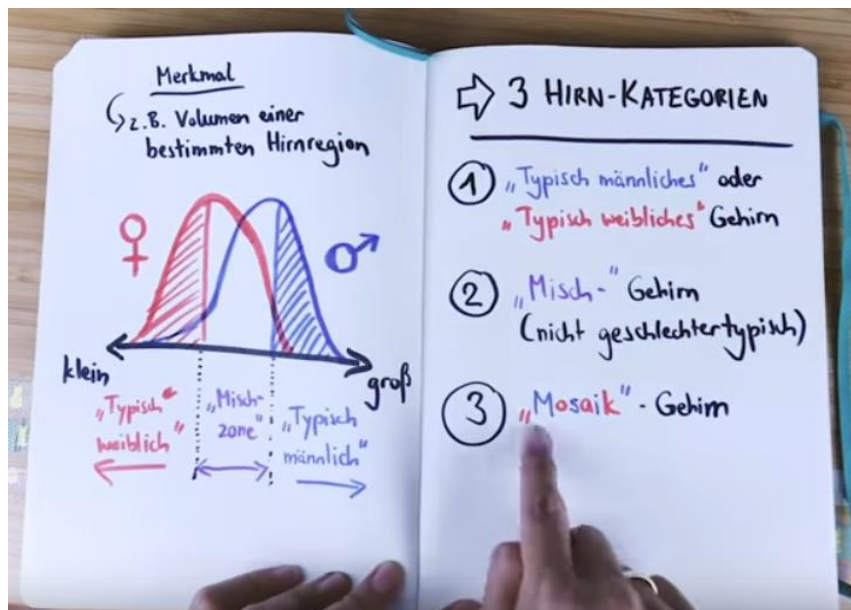 Merkmal
z.B. Volumen einer
bestimmten Hirnregion
♀
♂
klein
groß
„Typisch
weiblich“
„Misch-
zone“
„Typisch
männlich“
⇨ 3 HIRN-KATEGORIEN
1 „Typisch männliches“ oder
„Typisch weibliches“ Gehirn
2 „Misch-“ Gehirn
(nicht geschlechtertypisch)
3 „Mosaik“ - Gehirn